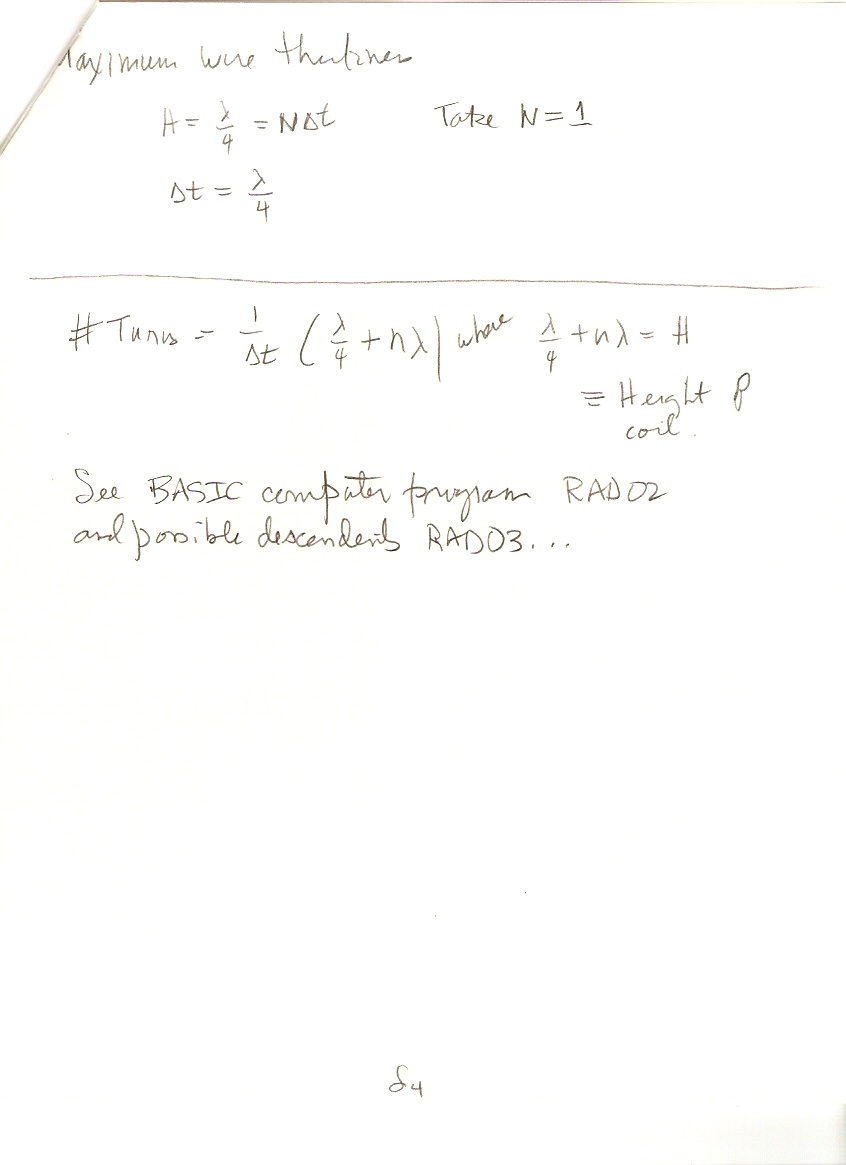 Maximum wire thickness
H = λ/4 = NΔt Take N = 1
Δt = λ/4
# Turns = 1/Δt (λ/4 + nλ) where λ/4 + nλ = H
≡ Height of
coil.
See BASIC computer program RAD02
and possible descendents RAD03...
δ4